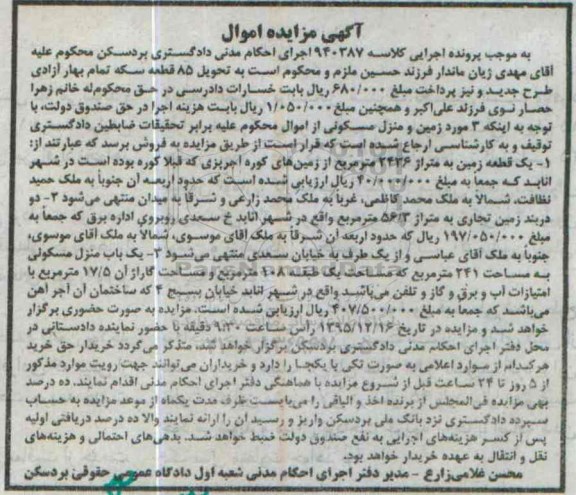 آگهی مزایده اموال
به موجب پرونده اجرایی کلاسه ۹۴۰۳۸۷ اجرای احکام مدنی دادگستری بردسکن محکوم علیه
آقای مهدی زیان ماندار فرزند حسین ملزم و محکوم است به تحویل ۸۵ قطعه سکه تمام بهار آزادی
طرح جدید و نیز پرداخت مبلغ ۶۸۰/۰۰۰ ریال بابت خسارات دادرسی در حق محکوم‌له خانم زهرا
حصار نوی فرزند علی‌اکبر و همچنین مبلغ ۱/۰۵۰/۰۰۰ ریال بابت هزینه اجرا در حق صندوق دولت، با
توجه به اینکه ۳ مورد زمین و منزل مسکونی از اموال محکوم علیه برابر تحقیقات ضابطین دادگستری
توقیف و به کارشناسی ارجاع شده است که قرار است از طریق مزایده به فروش برسد که عبارتند از:
۱- یک قطعه زمین به متراژ ۲۴۳۶ مترمربع از زمین‌های کوره آجرپزی که قبلا کوره بوده است در شهر
انابد که جمعا به مبلغ ۴۰/۰۰۰/۰۰۰ ریال ارزیابی شده است که حدود اربعه آن جنوباً به ملک حمید
نظافت، شمالا به ملک محمد کاظمی، غرباً به ملک محمد زارعی و شرقاً به میدان منتهی می‌شود ۲- دو
دربند زمین تجاری به متراژ ۵۶/۳ مترمربع واقع در شهر انابد خ سعدی روبروی اداره برق که جمعاً به
مبلغ ۱۹۷/۰۵۰/۰۰۰ ریال که حدود اربعه آن شرقاً به ملک آقای موسوی، شمالا به ملک آقای موسوی،
جنوباً به ملک آقای عباسی و از یک طرف به خیابان سعدی منتهی می‌شود ۳- یک باب منزل مسکونی
به مساحت ۲۴۱ مترمربع که مساحت یک طبقه ۱۰۸ مترمربع و مساحت گاراژ آن ۱۷/۵ مترمربع با
امتیازات آب و برق و گاز و تلفن می‌باشد واقع در شهر انابد خیابان بسیج ۴ که ساختمان آن آجر آهن
می‌باشد که جمعا به مبلغ ۴۰۷/۵۰۰/۰۰۰ ریال ارزیابی شده است. مزایده به صورت حضوری برگزار
خواهد شد و مزایده در تاریخ ۱۳۹۵/۱۲/۱۶ رأس ساعت ۹:۳۰ دقیقه با حضور نماینده دادستانی در
محل دفتر اجرای احکام مدنی دادگستری بردسکن برگزار خواهد شد، متذکر می‌گردد خریدار حق خرید
هرکدام از موارد اعلامی به صورت تکی یا یکجا را دارد و خریداران می‌توانند جهت رویت موارد مذکور
از ۵ روز تا ۲۴ ساعت قبل از شروع مزایده با هماهنگی دفتر اجرای احکام مدنی اقدام نمایند. ده درصد
بهی مزایده فی‌المجلس از برنده اخذ و الباقی را می‌بایست ظرف مدت یکماه از موعد مزایده به حساب
سپرده دادگستری نزد بانک ملی بردسکن واریز و رسید آن را ارائه نمایند والا ده درصد دریافتی اولیه
پس از کسر هزینه‌های اجرایی به نفع صندوق دولت ضبط خواهد شد. بدهی‌های احتمالی و هزینه‌های
نقل و انتقال به عهده خریدار خواهد بود.
محسن غلامی‌زارع - مدیر دفتر اجرای احکام مدنی شعبه اول دادگاه عمومی حقوقی بردسکن